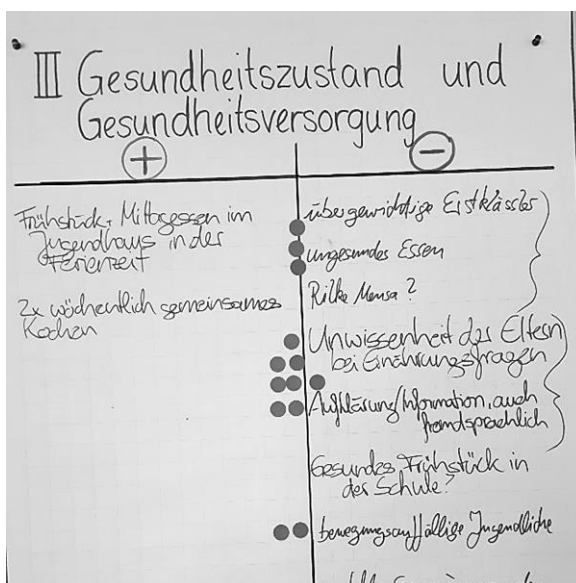 III Gesundheitszustand und
Gesundheitsversorgung
+
−
Frühstück, Mittagessen im
Jugendhaus in der
Ferienzeit
2x wöchentlich gemeinsames
Kochen
übergewichtige Erstklässler
ungesundes Essen
Rilke Mensa?
Unwissenheit der Eltern
bei Ernährungsfragen
Aufklärung/Information, auch
fremdsprachlich
Gesundes Frühstück in
der Schule?
bewegungsauffällige Jugendliche